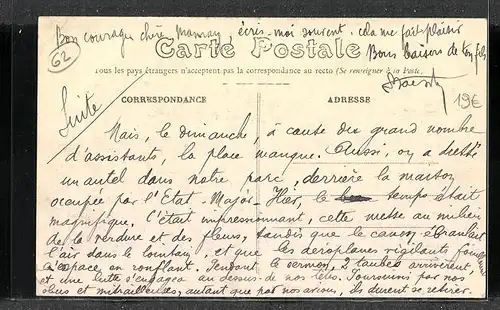 Bon courage, chère Maman, écris-moi souvent. cela me fait plaisir
Bons baisers de ton fils
62
Carte Postale
Tous les pays étrangers n'acceptent pas la correspondance au recto (Se renseigner à la Poste.
19€
Suite
CORRESPONDANCE
ADRESSE
Mais, le dimanche, à cause du grand nombre
d'assistants, la place manque. Aussi, on a dressé
un autel dans notre parc, derrière la maison
occupée par l'Etat-Major- Hier, le temps était
magnifique. C'était impressionnant, cette messe au milieu
de la verdure et des fleurs, tandis que le canon ébranlait
l'air dans le lointain, et que les aéroplanes vigilants fouillaient
l'espace en ronflant. Pendant le sermon, 2 taubes arrivèrent,
et une lutte s'engagea au-dessus de nos têtes. Poursuivis par nos
obus et mitrailleuses, autant que par nos avions, ils durent se retirer.